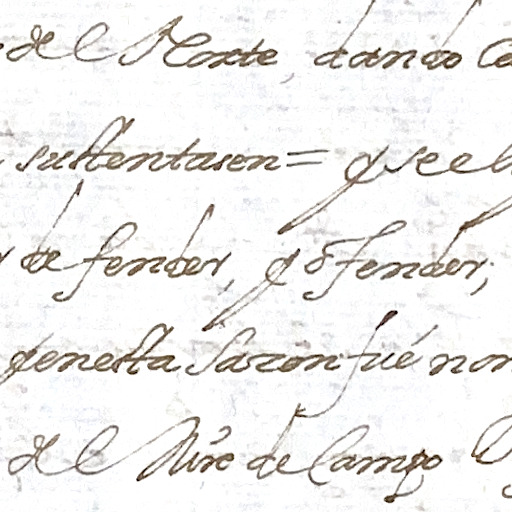 del Norte, dando
sustentasen= y se el
defender, y ofender;
y en esta sazon fué
del Mro de Campo